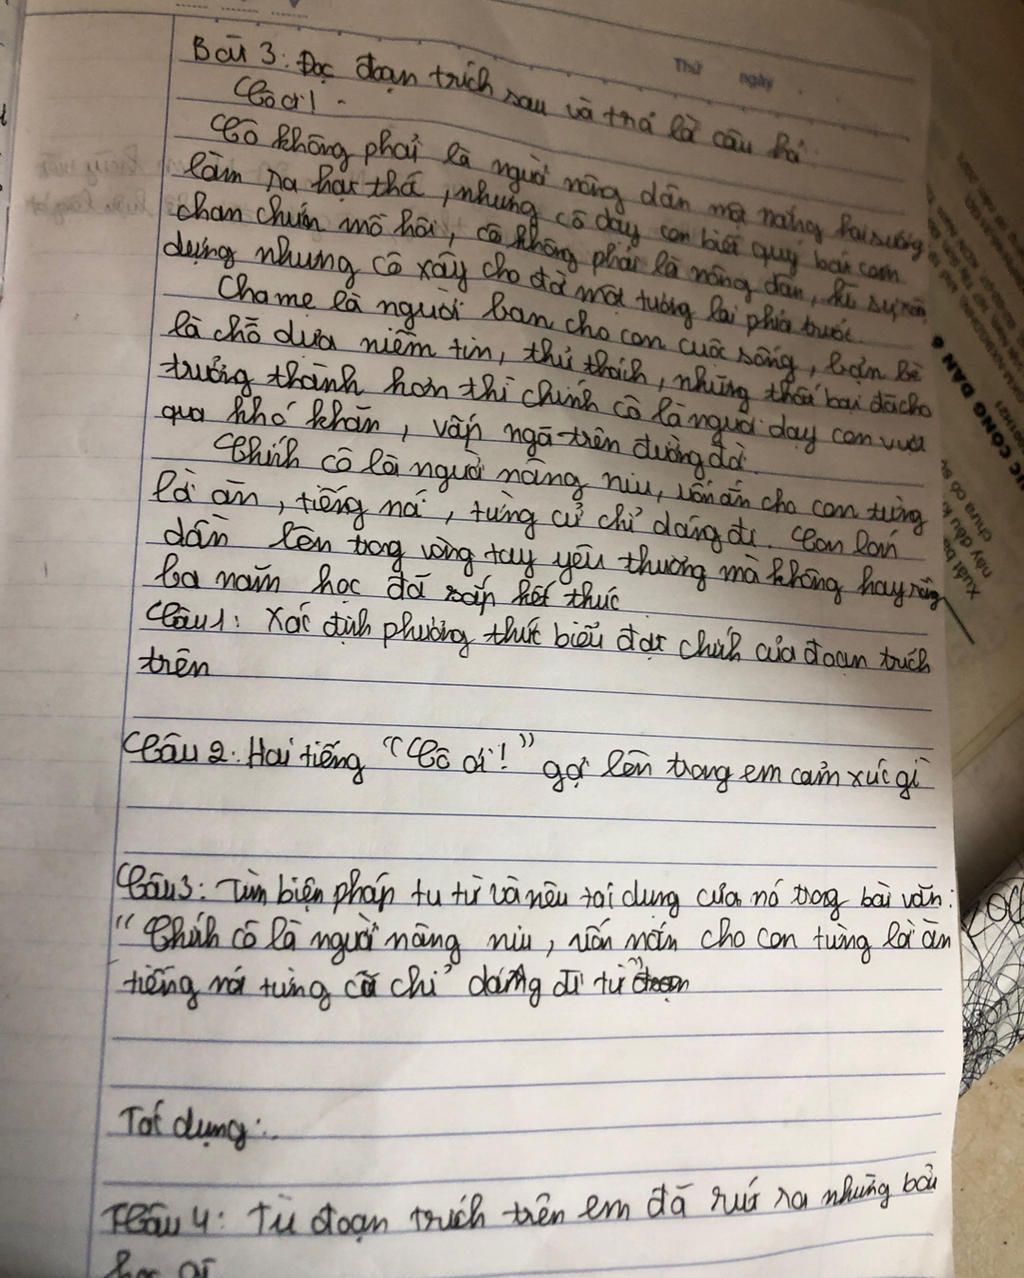 Thứ ngày
Bài 3: Đọc đoạn trích sau và trả lời câu hỏi
Cô ơi!
Cô không phải là người nông dân một nắng hai sương
làm ra hạt thóc, nhưng cô dạy con biết quý bát cơm
chan chứa mồ hôi, cô không phải là nông dân, kĩ sư xây
dựng nhưng cô xây cho đời một tương lai phía trước.
Cha mẹ là người ban cho con cuộc sống, bạn bè
là chỗ dựa niềm tin, thử thách, những thất bại đã cho
trưởng thành hơn thì chính cô là người dạy con vượt
qua khó khăn, vấp ngã trên đường đời.
Chính cô là người nâng niu, uốn nắn cho con từng
lời ăn, tiếng nói, từng cử chỉ dáng đi. Con lớn
dần lên trong vòng tay yêu thương mà không hay rằng
ba năm học đã sắp kết thúc
Câu 1: Xác định phương thức biểu đạt chính của đoạn trích
trên
Câu 2: Hai tiếng "Cô ơi!" gợi lên trong em cảm xúc gì
Câu 3: Tìm biện pháp tu từ và nêu tác dụng của nó trong bài văn:
"Chính cô là người nâng niu, uốn nắn cho con từng lời ăn
tiếng nói từng cử chỉ dáng đi từ"
Tác dụng:..
Câu 4: Từ đoạn trích trên em đã rút ra những bài
học gì
ỤC CÔNG DÂN 6